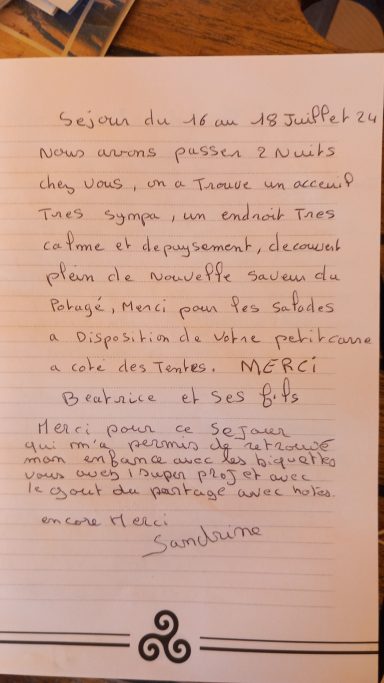 Sejour du 16 au 18 Juillet 24
Nous avons passer 2 Nuits
chez vous, on a Trouve un acceuil
Tres sympa, un endroit Tres
calme et depaysement, decouvert
plein de Nouvelle Saveur du
Potagé, Merci pour les Salades
a Disposition de votre petit carre
a coté des Tentes. MERCi
Beatrice et Ses fils
Merci pour ce Sejour
qui m'a permis de retrouvé
mon enfance avec les biquettes
vous avez 1 super projet avec
le gout du partage avec hotes.
encore Merci
Sandrine